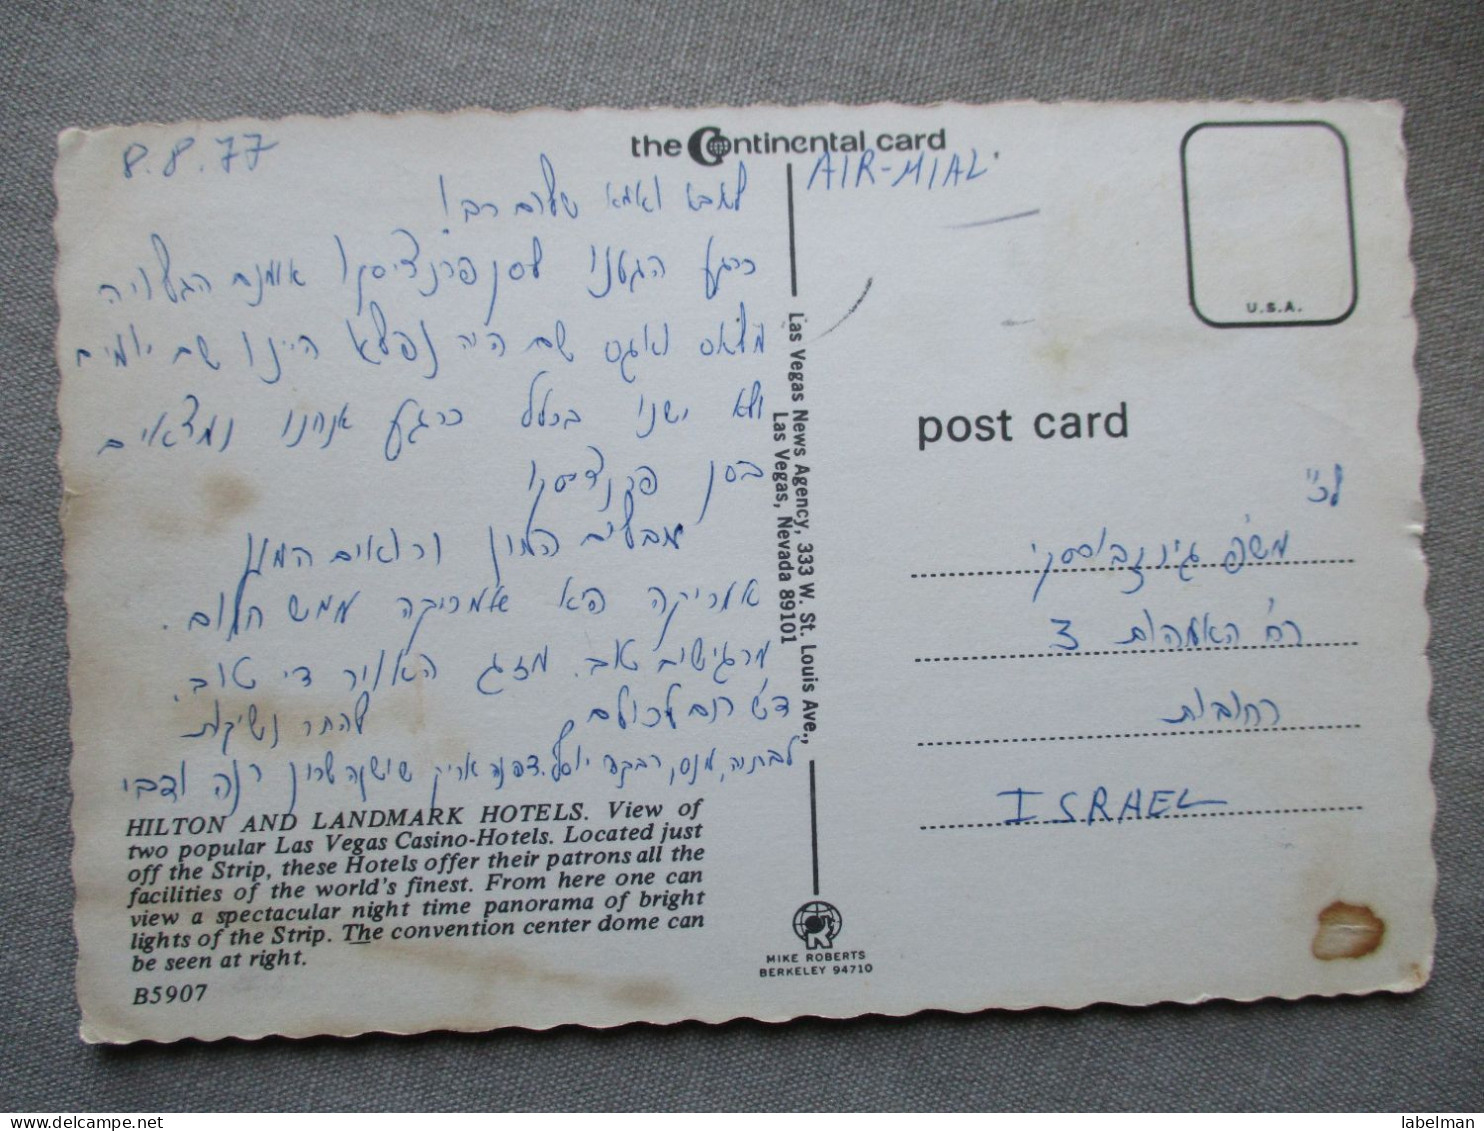 8.8.77
the Continental card
AIR-MIAL
לאבא ואמא שלום רב!
כרגע הגענו לסן פרנציסקו אומנם הגלויה
מלאס וגאס שם היה נפלא היינו שם יומיים
ולא ישנו בכלל כרגע אנחנו נמצאים
בסן פרנציסקו
מבלים המון ורואים המון
אמריקה היא אמריקה ממש חלום.
מרגישים טוב. מזג האויר די טוב.
ד"ש חם לכולם
להתר נשיקות
לבתיה, מנס, רבקה יוסל. דפנה אריק שושנה שרון רנה ודבי
HILTON AND LANDMARK HOTELS. View of
two popular Las Vegas Casino-Hotels. Located just
off the Strip, these Hotels offer their patrons all the
facilities of the world's finest. From here one can
view a spectacular night time panorama of bright
lights of the Strip. The convention center dome can
be seen at right.
B5907
Las Vegas News Agency, 333 W. St. Louis Ave.,
Las Vegas, Nevada 89101
MIKE ROBERTS
BERKELEY 94710
U.S.A.
post card
לכ"
משפ' גינזבורסקי
רח' האמהות 3
רחובות
ISRAEL
labelman
www.delcampe.net